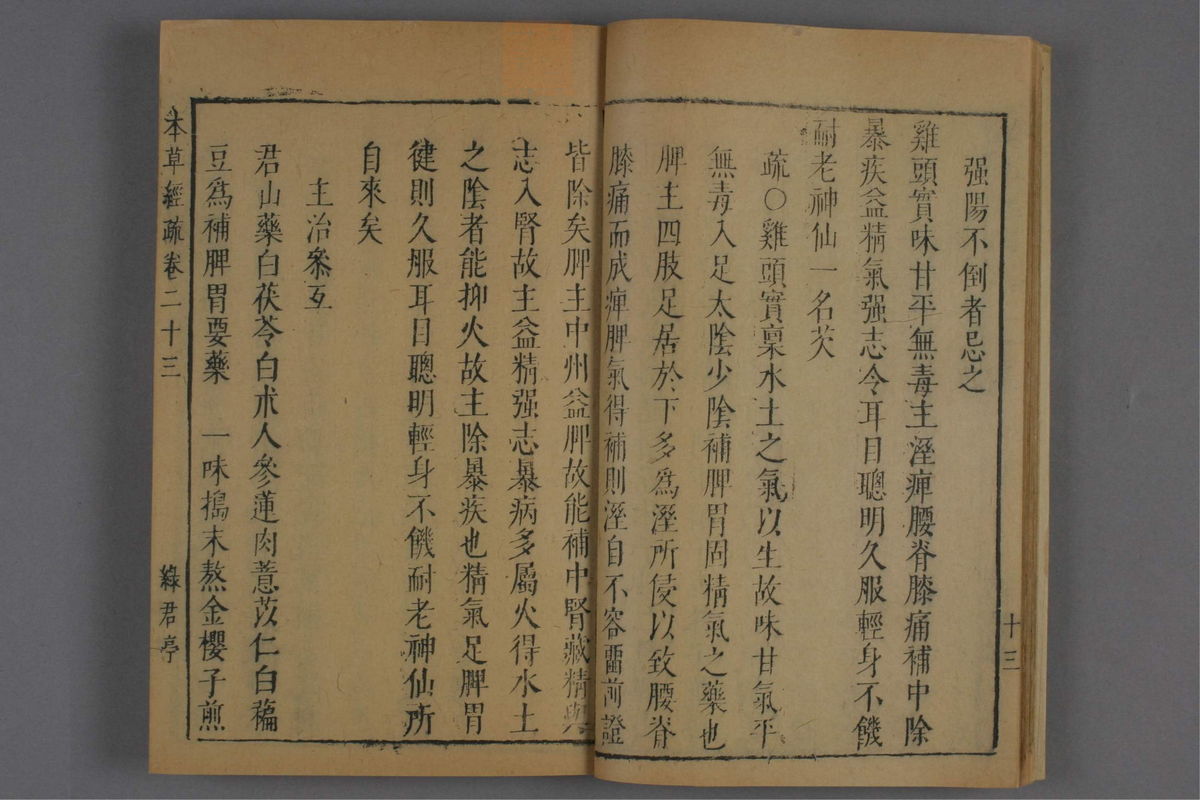 强陽不倒者忌之
雞頭實味甘平無毒主溼痺腰脊膝痛補中除
暴疾益精氣强志令耳目聰明久服輕身不饑
耐老神仙一名芡
疏○雞頭實稟水土之氣以生故味甘氣平
無毒入足太陰少陰補脾胃固精氣之藥也
脾主四肢足居於下多爲溼所侵以致腰脊
膝痛而成痺脾氣得補則溼自不容畱前證
十三
皆除矣脾主中州益脾故能補中腎藏精與
志入腎故主益精强志暴病多屬火得水土
之陰者能抑火故主除暴疾也精氣足脾胃
健則久服耳目聰明輕身不饑耐老神仙所
自來矣
主治叅互
君山藥白茯苓白朮人參蓮肉薏苡仁白藊
豆爲補脾胃要藥 一味搗末熬金櫻子煎
本草經疏卷二十三
綠君亭